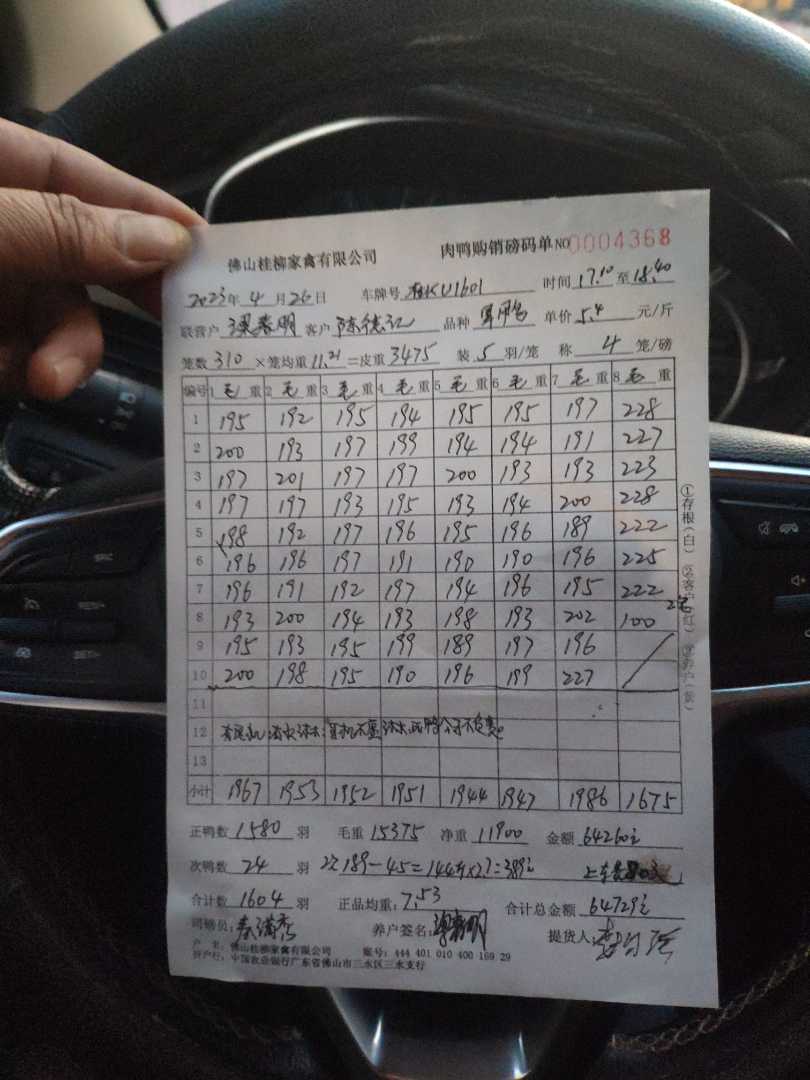 佛山桂柳家禽有限公司 肉鸭购销磅码单 NO 0004368
2023年 4 月 26 日 车牌号 KU1601 时间 17.10 至 18.40
联营户 客户 陈德记 品种 单价 5.4 元/斤
笼数 310 ×笼均重 11.21 =皮重 3475 装 5 羽/笼 称 4 笼/磅
编号 1 毛 重 2 毛 重 3 毛 重 4 毛 重 5 毛 重 6 毛 重 7 毛 重 8 毛 重
1 195 192 195 194 195 195 197 228
2 200 193 197 199 194 194 191 227
3 197 201 197 197 200 193 193 223
4 197 197 193 195 193 194 200 228
5 198 192 197 196 195 196 189 222
6 196 196 197 191 190 190 196 225
7 196 191 192 197 194 196 195 222
8 193 200 194 193 198 193 202 100 2笼
9 195 193 195 199 189 197 196
10 200 198 195 190 196 199 227
11
12
13
小计 1967 1953 1952 1951 1944 1947 1986 1675
正鸭数 1580 羽 毛重 15375 净重 11900 金额 64260元
次鸭数 24 羽 189-45=144斤×2.7=389元 上车费80元
合计数 1604 羽 正品均重: 7.53 合计总金额 64729元
司磅员: 养户签名: 提货人:
户 名: 佛山桂柳家禽有限公司 账号: 444 401 010 400 169 29
开户行: 中国农业银行广东省佛山市三水区三水支行
①存根(白) ②客户(红) ③养户(黄)